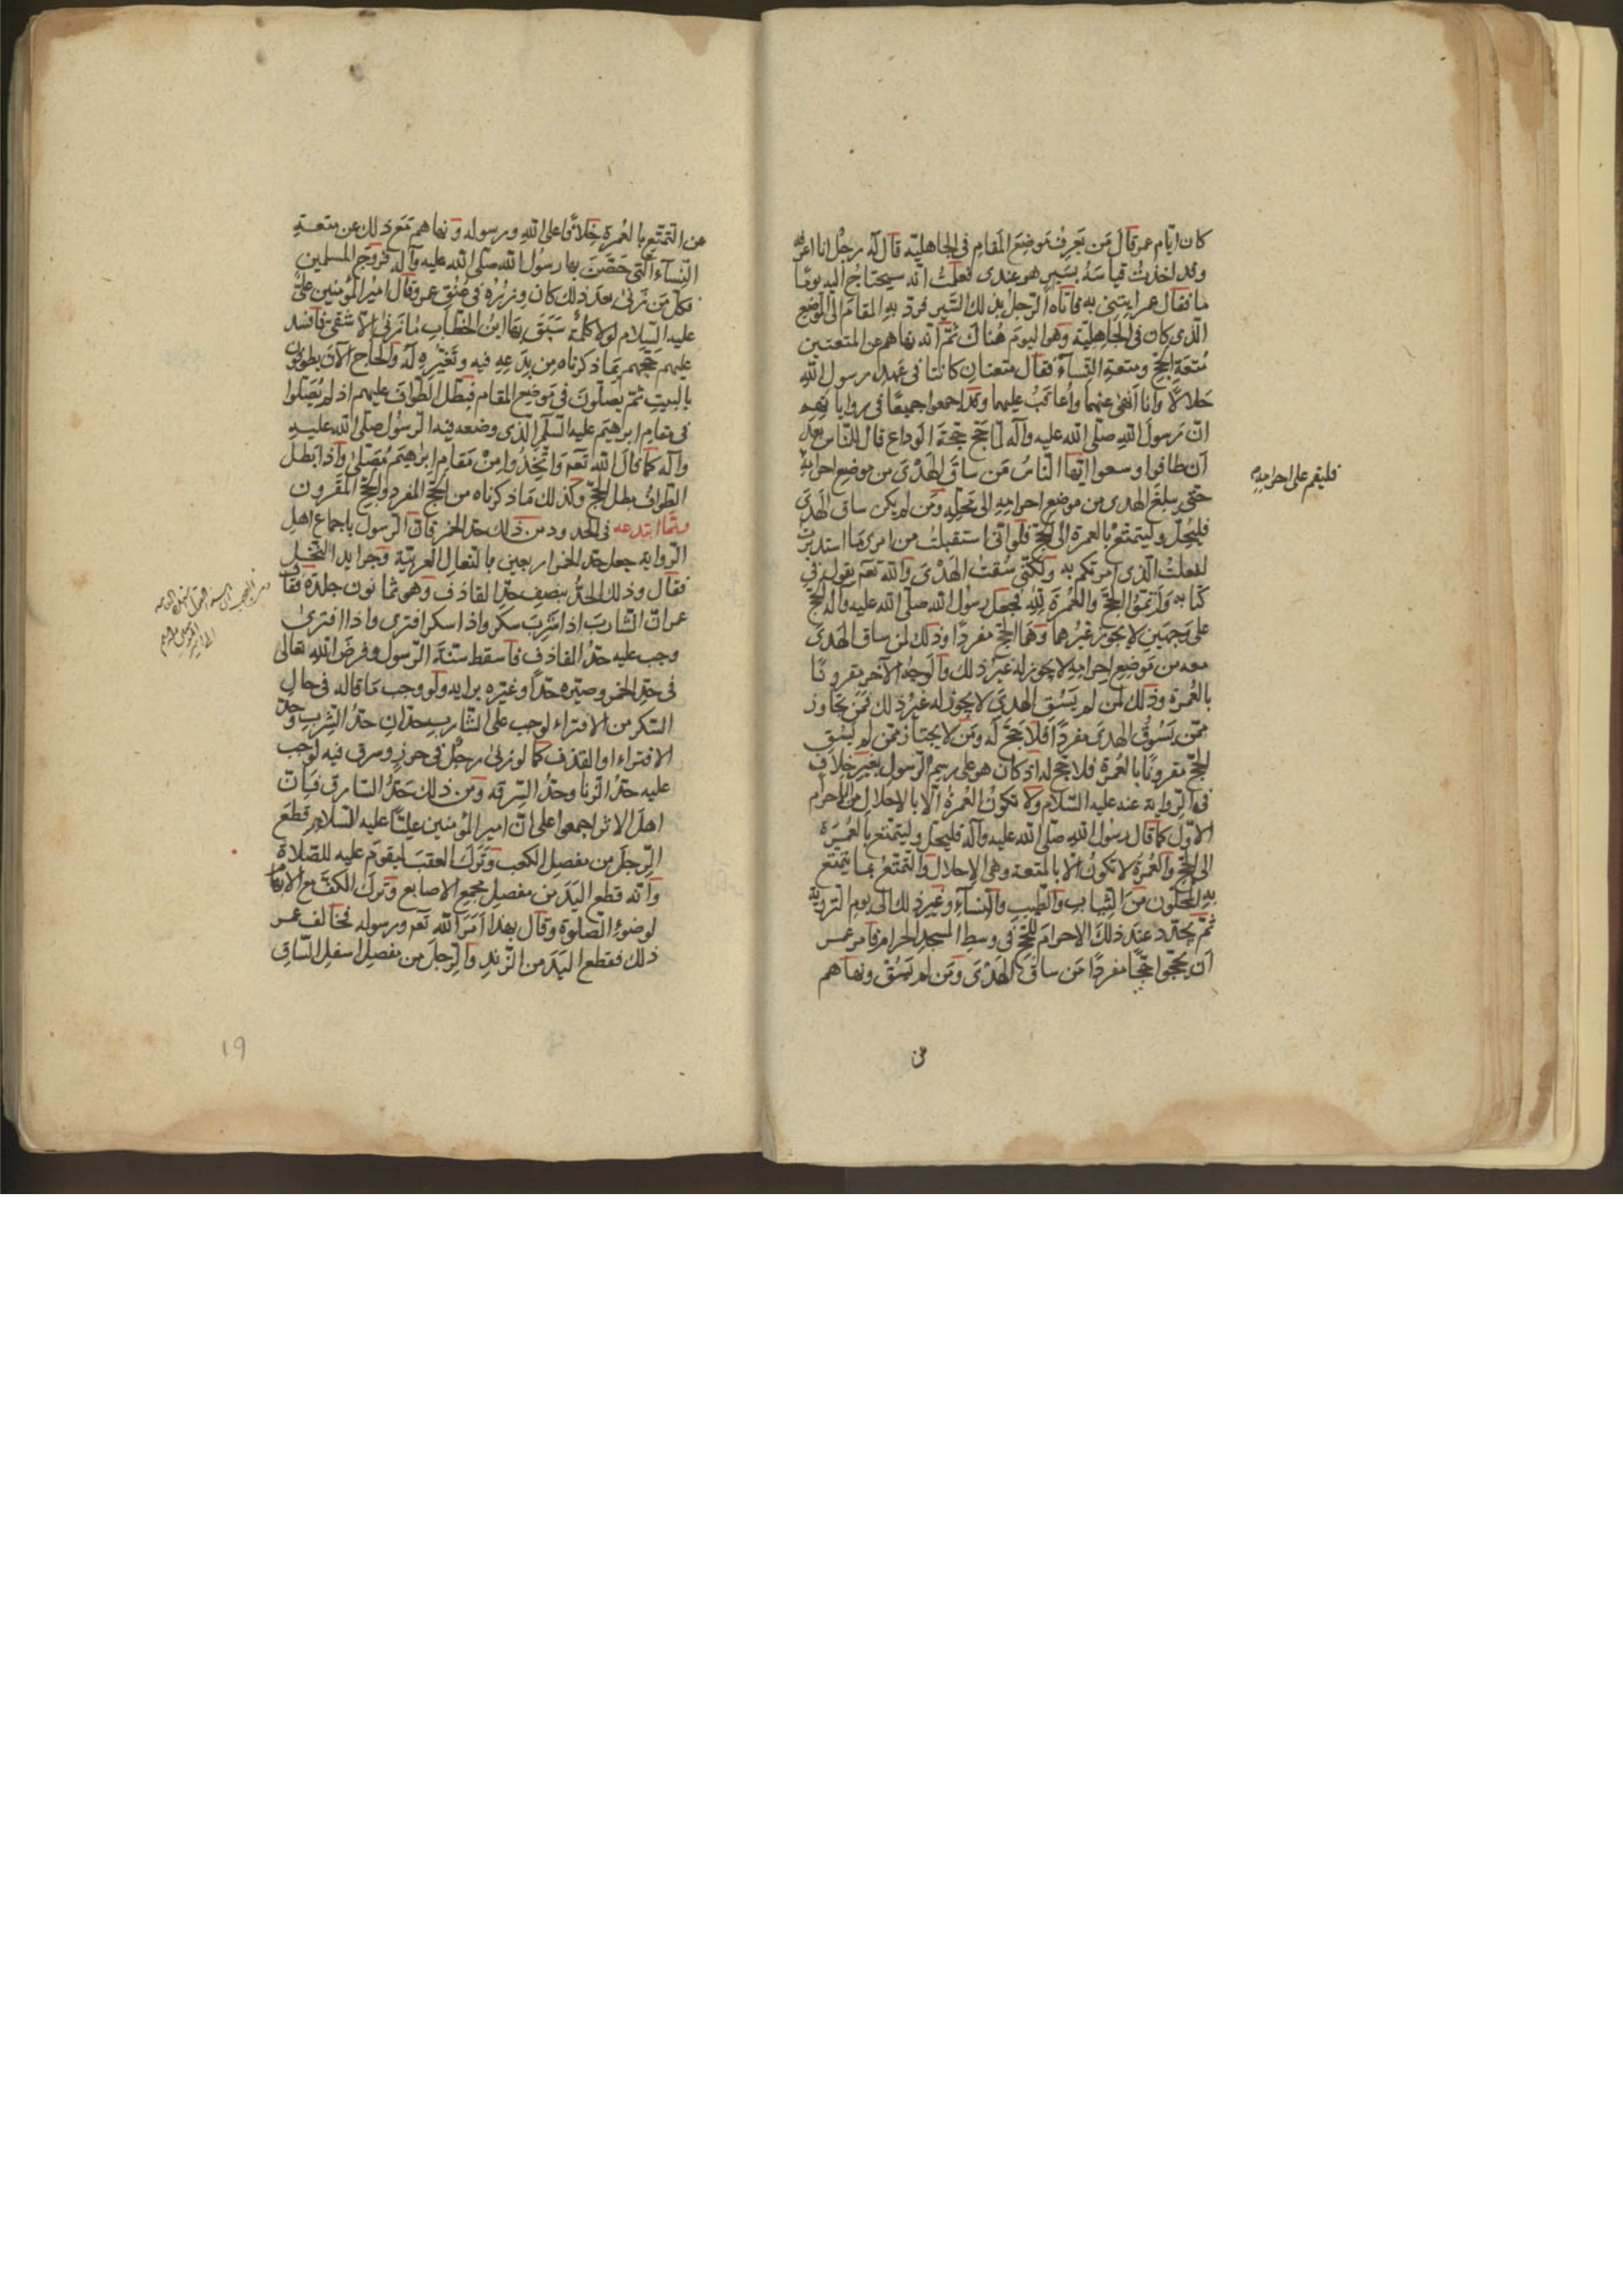 كان ايام عمر قال من يعرف موضع المقام في الجاهلية قال له رجل انا اعرفه
وقد اخذت قياسه بسير هو عندي فعلمت انه سيحتاج اليه يوما
ما فقال عمر ايتني به فاتاه الرجل بذلك السير فرد به المقام الى الموضع
الذي كان في الجاهلية وهو اليوم هناك ثم انه نهاهم عن المتعتين
متعة الحج ومتعة النساء فقال متعتان كانتا في عهد رسول الله
حلالا وانا انهى عنهما واعاقب عليهما وقد اجمعوا جميعا في رواياتهم
ان رسول الله صلى الله عليه وآله لما حج حجة الوداع قال للناس بعد
ان طافوا وسعوا ايها الناس من ساق الهدى من موضع احرامه
فليقم على احرامه
حتى يبلغ الهدى من موضع احرامه الى محله ومن لم يكن ساق الهدى
فليحل وليتمتع بالعمرة الى الحج فلو اني استقبلت من امري ما استدبرت
لفعلت الذي امرتكم به ولكني سقت الهدى والله تعم يقول في
كتابه واتموا الحج والعمرة لله فجعل رسول الله صلى الله عليه وآله الحج
على وجهين لا يجوز غيرهما وهما الحج مفردا وذلك لمن ساق الهدى
معه من موضع احرامه لا يجوز له غير ذلك والوجه الآخر مقرونا
بالعمرة وذلك لمن لم يسق الهدى لا يجوز له غير ذلك فمن تجاوز
ممن يسوق الهدى مفردا فلا حج له ومن لا يجتاز ممن لم يسق
الحج مقرونا بالعمرة فلا حج له اذ كان هو على رسم الرسول بغير خلاف
في الرواية عنه عليه السلام ولا تكون العمرة الا بالاحلال من الاحرام
الاول كما قال رسول الله صلى الله عليه وآله فليحل وليتمتع بالعمرة
الى الحج والعمرة لا تكون الا بالمتعة وهي الاحلال والتمتع بما يتمتع
به المحلون من الثياب والطيب والنساء وغير ذلك الى يوم التروية
ثم يجدد عند ذلك الاحرام للحج في وسط المسجد الحرام فامر عمر
ان يحجوا حجا مفردا من ساق الهدى ومن لم يسق ونهاهم
عن
عن التمتع بالعمرة خلافا على الله ورسوله ونهاهم مع ذلك عن متعة
النساء التي حصن بها رسول الله صلى الله عليه وآله فروج المسلمين
فكل من زنى بعد ذلك كان وزره في عنق عمر وقال امير المؤمنين علي
عليه السلام لولا كلمة سبق بها ابن الخطاب ما زنى الا شقي فافسد
عليهم حجهم بما ذكرناه من بدعه فيه وتغييره له والحاج الآن يطوفون
بالبيت ثم يصلون في موضع المقام فبطل الطواف عليهم اذ لم يصلوا
في مقام ابراهيم عليه السلم الذي وضعه فيه الرسول صلى الله عليه
وآله كما قال الله تعم واتخذوا من مقام ابراهيم مصلى واذا بطل
الطواف بطل الحج وكذلك ما ذكرناه من الحج المفرد والحج المقرون
ومما ابتدعه في الحدود من ذلك حد الخمر فان الرسول باجماع اهل
الرواية جعل حد الخمر اربعين بالنعال العربية وجرايد النخل
فقال وذلك الحد بنصف حد القاذف وهي ثمانون جلدة فقال
عمر ان الشارب اذا شرب سكر واذا سكر افترى واذا افترى
وجب عليه حد القاذف فاسقط سنة الرسول وفرض الله تعالى
في حد الخمر وصيره حدا وغيره برايه ولو وجب ما قاله في حال
السكر من الافتراء لوجب على الشارب حدان حد الشرب وحد
الافتراء او القذف كما لو زنى رجل في حرز وسرق فيه لوجب
عليه حد الزنا وحد السرقة ومن ذلك حد السارق فان
اهل الاثر اجمعوا على ان امير المؤمنين عليا عليه السلام قطع
الرجل من مفصل الكعب وترك العقب ليقوم عليه للصلاة
وانه قطع اليد من مفصل مجمع الاصابع وترك الكف مع الابهام
لوضوء الصلوة وقال بهذا امر الله تعم ورسوله فخالف عمر
ذلك فقطع اليد من الزند والرجل من مفصل اسفل الساق
19